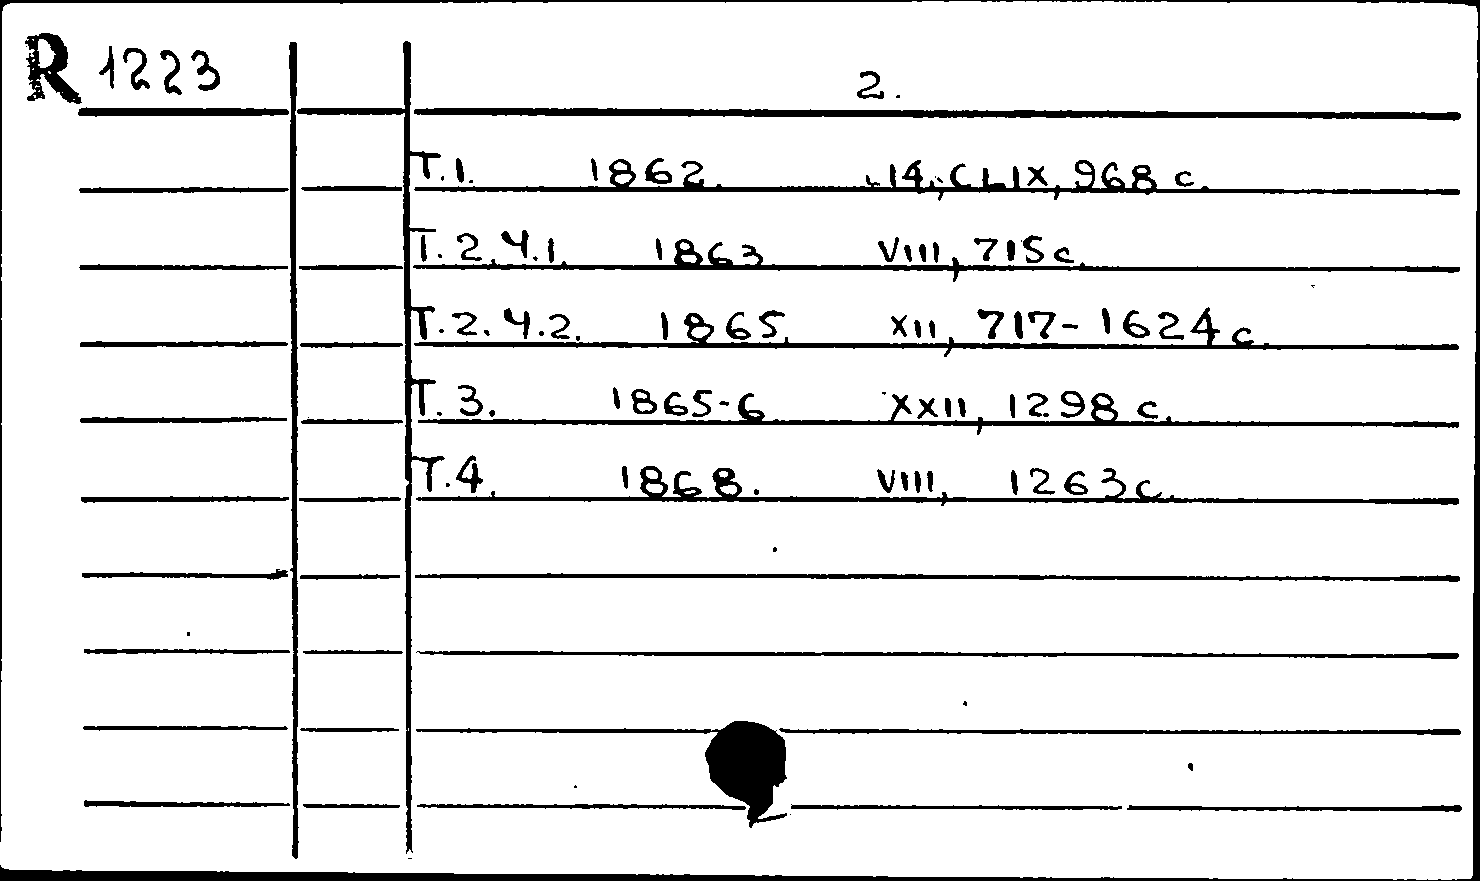 R 1223
2.
Т.1. 1862. 14, CLIX, 968 с.
Т.2.Ч.1. 1863 VIII, 715 с.
Т.2.Ч.2. 1865. XII, 717-1624 с.
Т.3. 1865-6 XXII, 1298 с.
Т.4. 1868. VIII, 1263 с.